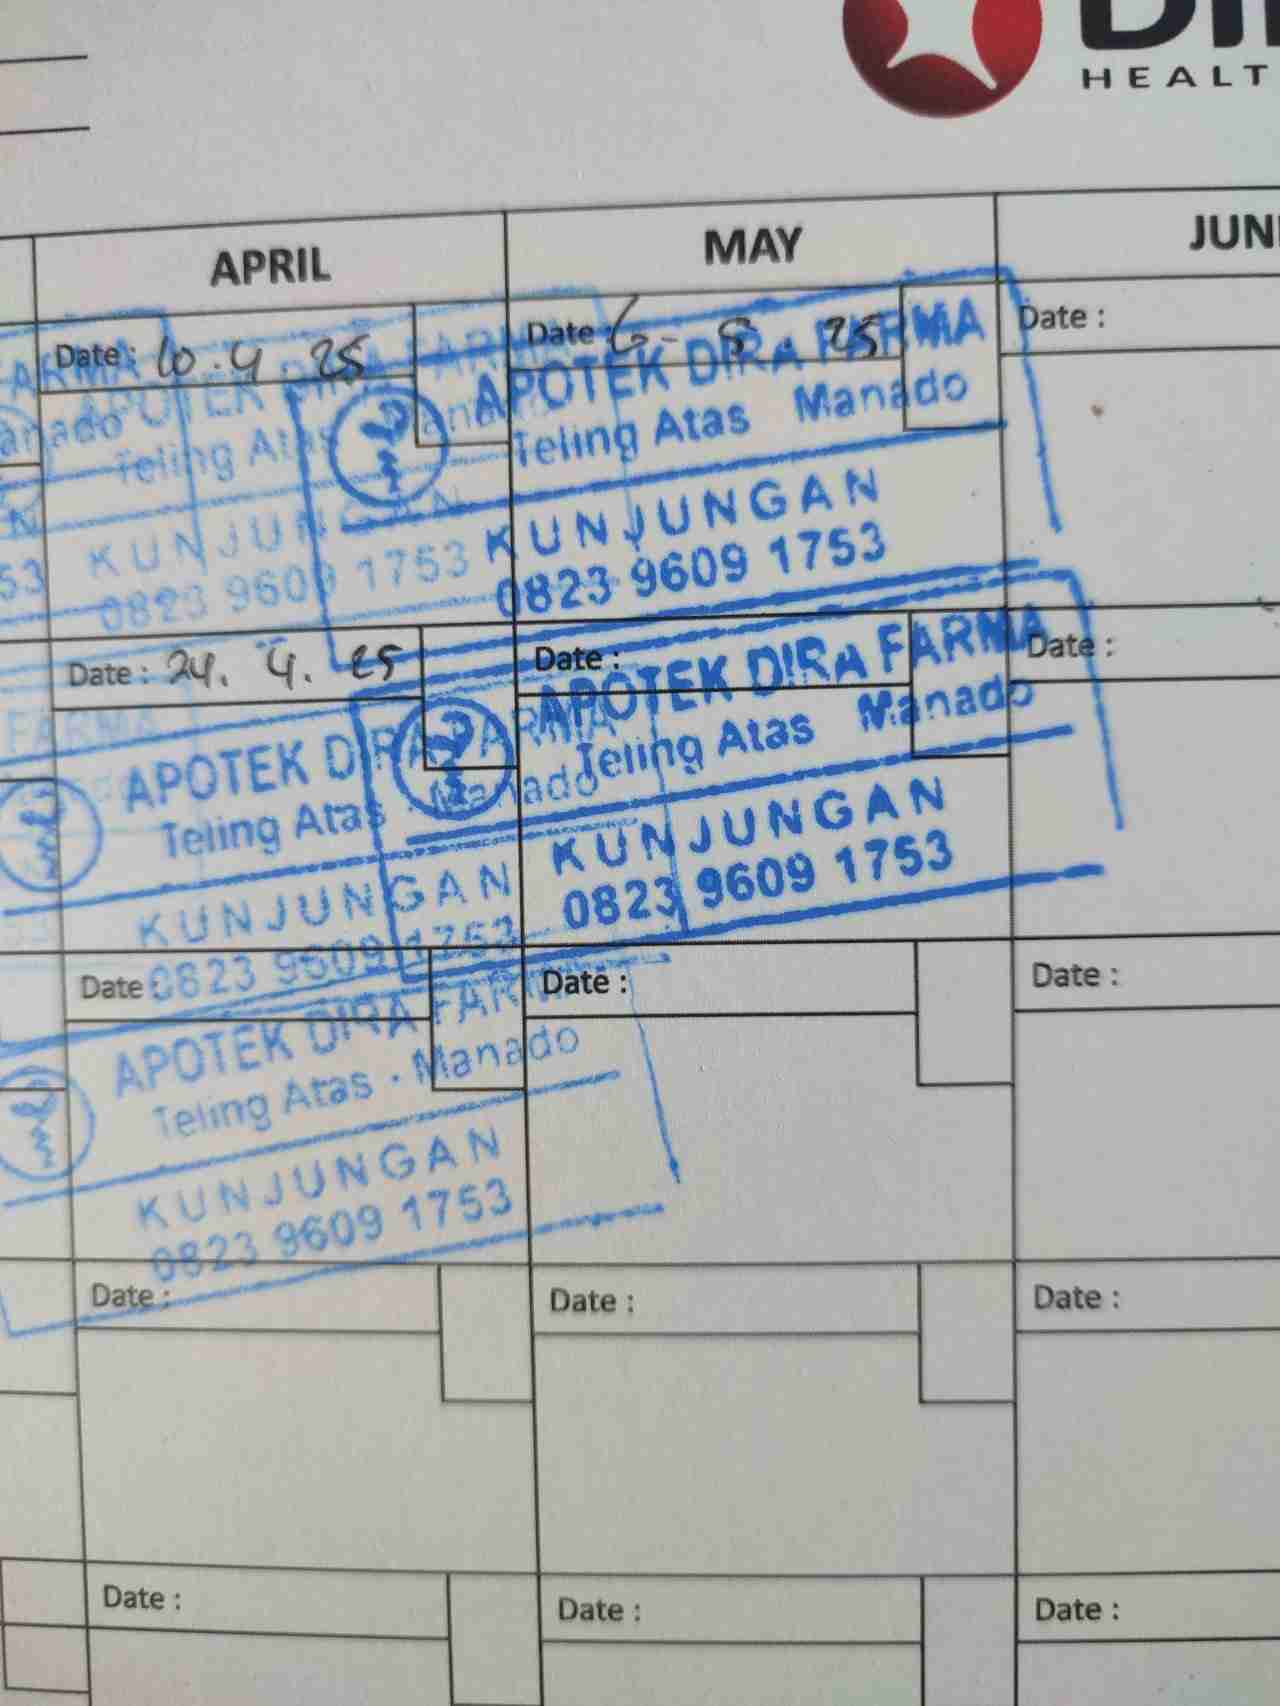 HEALT
APRIL
MAY
JUNI
Date : 10.4 25
Date : 6- 5 . 25
Date :
FARMA
anado
APOTEK DIRA FARMA
Teling Atas Manado
KUNJUNGAN
0823 9609 1753
APOTEK DIRA FARMA
Teling Atas Manado
KUNJUNGAN
0823 9609 1753
53
Date : 24. 4. 25
Date :
Date :
FARMA
APOTEK DIRA FARMA
Teling Atas . Manado
KUNJUNGAN
0823 9609 1753
APOTEK DIRA FARMA
Teling Atas Manado
KUNJUNGAN
0823 9609 1753
Date :
Date :
Date :
APOTEK DIRA FARMA
Teling Atas . Manado
KUNJUNGAN
0823 9609 1753
Date :
Date :
Date :
Date :
Date :
Date :